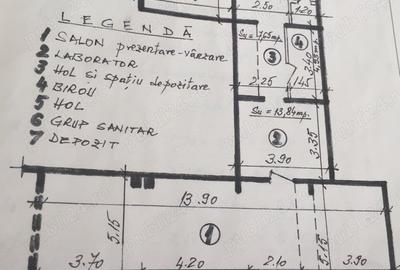 LEGENDĂ
1 SALON prezentare-vânzare
2 LABORATOR
3 HOL și spațiu depozitare
4 BIROU
5 HOL
6 GRUP SANITAR
7 DEPOZIT
2.50
1.20
Su=7,65mp.
3
4
2.40
2.25
1.45
Su=13,84mp.
2
3.35
3.90
13.90
5.15
1
5.15
3.70
4.20
2.10
3.90